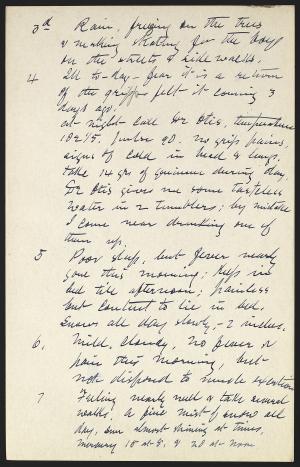 3d Rain, freezing on the trees
& making skating for the boys
on the streets & side walks.
4 Ill to-day - fear it is a return
of the grippe - felt it coming 3
days ago.
at night call Dr Otis, temperature
102 4/5. pulse 90. no grip pains,
signs of cold in head & lungs.
take 14 grs of quinine during day.
Dr Otis gives me some tasteless
water in 2 tumblers; by mistake
I come near drinking one of
them up.
5 Poor sleep, but fever nearly
gone this morning; keep in
bed till afternoon; painless
but content to lie in bed.
Snows all day slowly, - 2 inches.
6. Mild, cloudy, no fever or
pain this morning, but
not disposed to muscle exertion
7 Feeling nearly well & take several
walks. A fine mist of snow all
day, sun almost shining at times.
Mercury 18 at 8, & 20 at noon